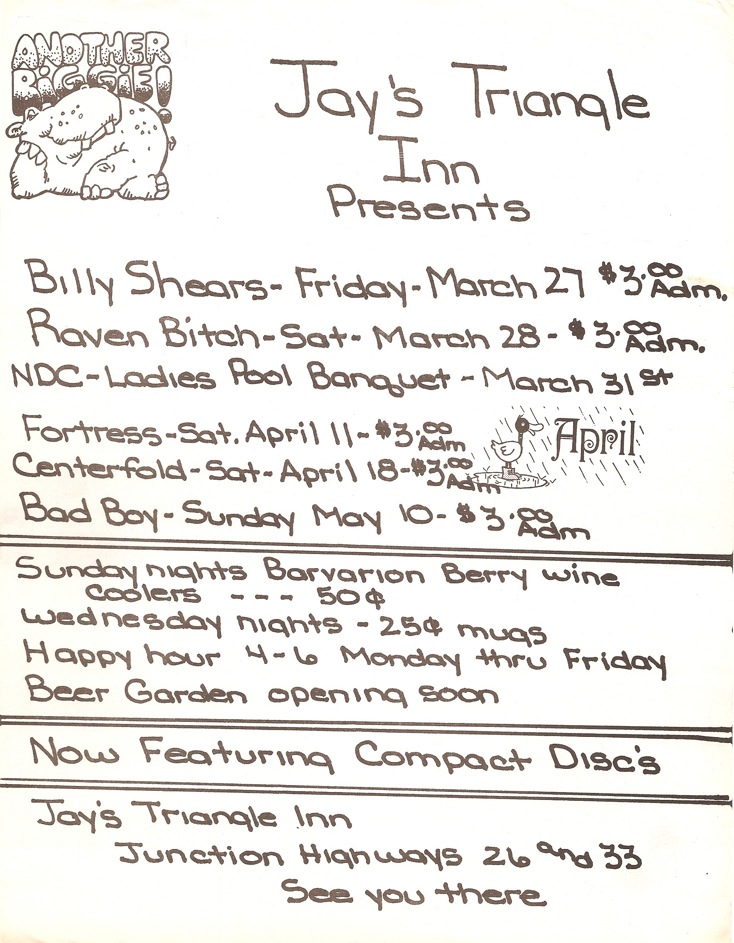 ANOTHER
BIGGIE!
Jay's Triangle
Inn
Presents
Billy Shears- Friday- March 27 $3.00 Adm.
Raven Bitch-Sat- March 28- $3.00 Adm.
NDC-Ladies Pool Banquet - March 31st
Fortress-Sat. April 11-$3.00 Adm
April
Centerfold-Sat-April 18-$3.00 Adm
Bad Boy- Sunday May 10- $3.00 Adm
Sunday nights Barvarion Berry wine
coolers --- 50¢
Wednesday nights - 25¢ mugs
Happy hour 4-6 Monday thru Friday
Beer Garden opening soon
Now Featuring Compact Disc's
Jay's Triangle Inn
Junction Highways 26 and 33
See you there